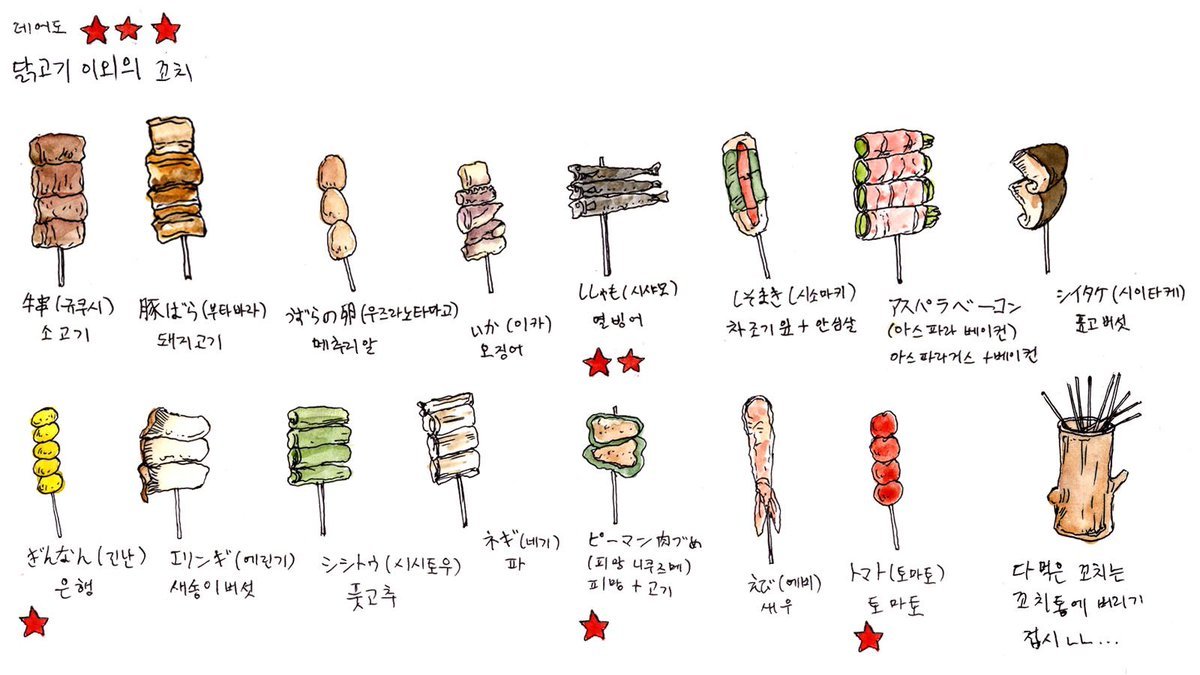 레어도
닭고기 이외의 꼬치
牛串(규쿠시)
소고기
豚ばら(부타바라)
돼지고기
うずらの卵(우즈라노타마고)
메추리알
いか(이카)
오징어
ししゃも(시샤모)
열빙어
しそまき(시소마키)
차조기 잎 + 안심살
アスパラベーコン
(아스파라 베이컨)
아스파라거스 + 베이컨
シイタケ(시이타케)
표고버섯
ぎんなん(긴난)
은행
エリンギ(에린기)
새송이버섯
シシトウ(시시토우)
풋고추
ネギ(네기)
파
ピーマン肉づめ
(피망 니쿠즈메)
피망 + 고기
えび(에비)
새우
トマト(토마토)
토마토
다 먹은 꼬치는
꼬치통에 버리기
접시 ㄴㄴ...